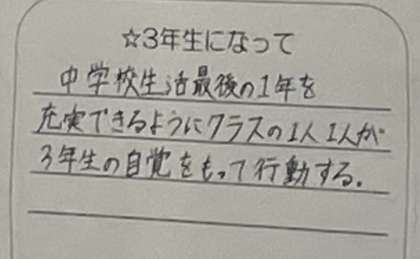 ☆3年生になって
中学校生活最後の1年を
充実できるようにクラスの1人1人が
3年生の自覚をもって行動する.